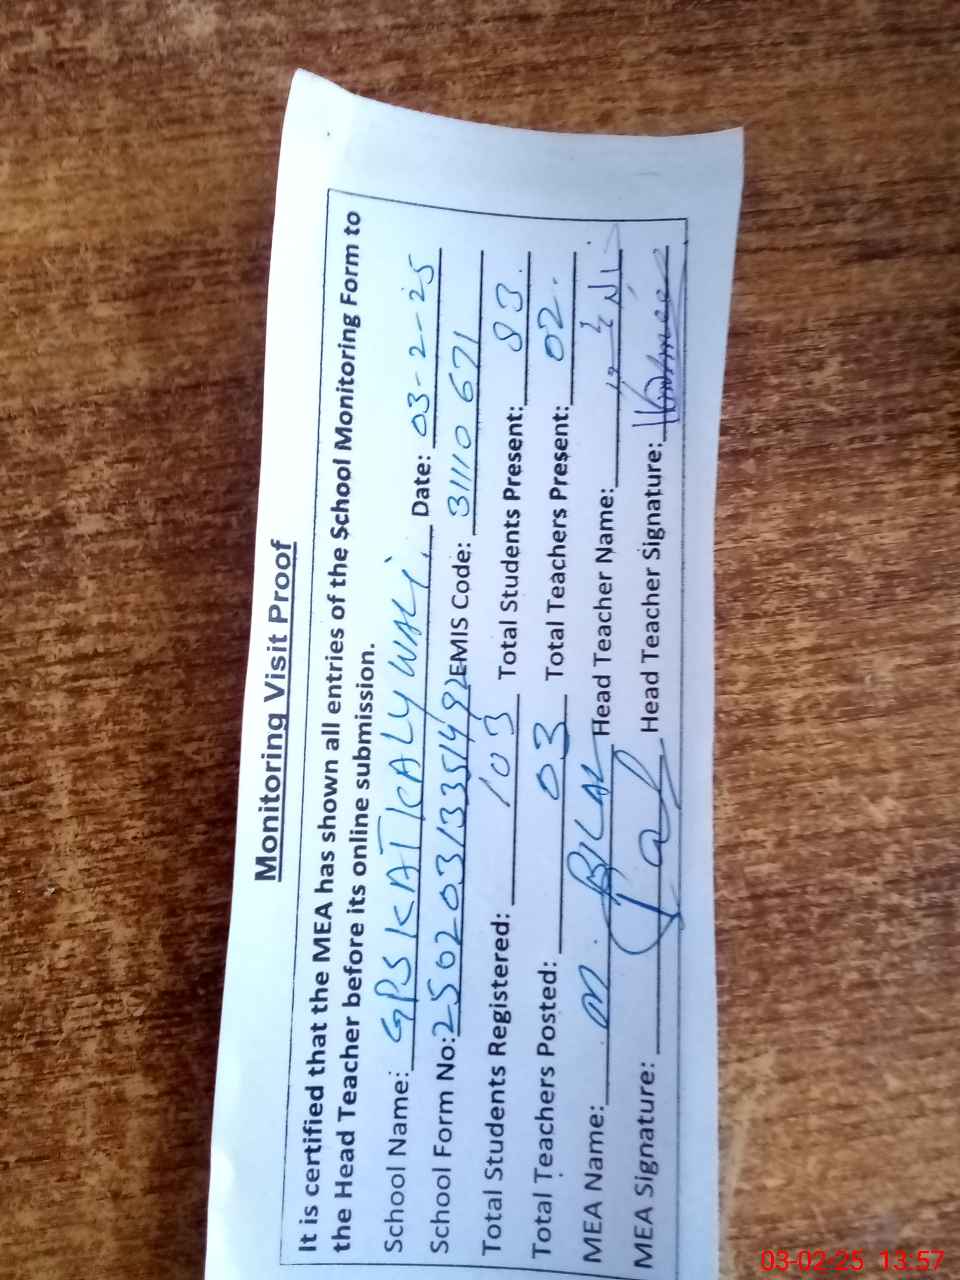 Monitoring Visit Proof
It is certified that the MEA has shown all entries of the School Monitoring Form to
the Head Teacher before its online submission.
School Name: GPS KAT KALYWALI. Date: 03-2-25
School Form No: 25020313351492 EMIS Code: 31110671
Total Students Registered: 103 Total Students Present: 83.
Total Teachers Posted: 03 Total Teachers Present: 02.
MEA Name: M. BILAL Head Teacher Name:
MEA Signature: Head Teacher Signature:
03-02-25 13:57